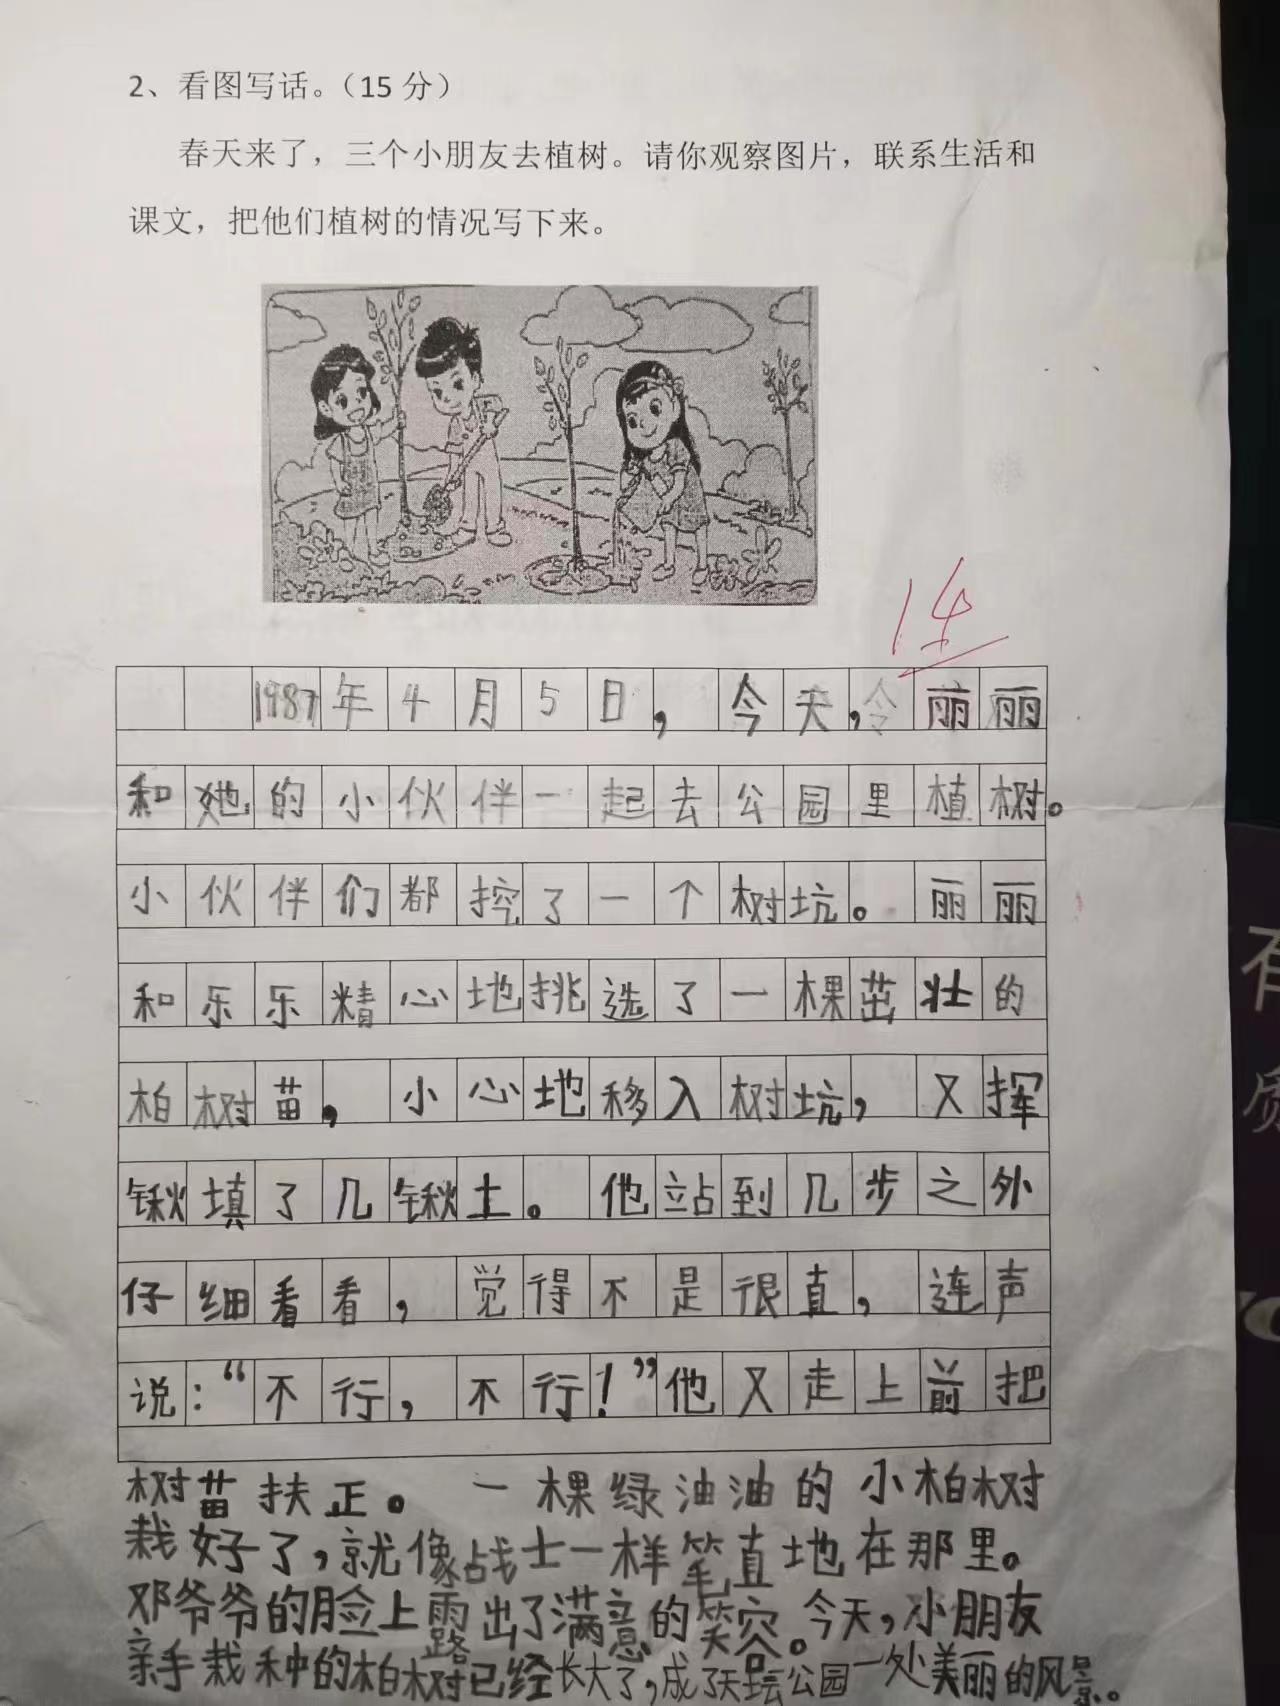 2、看图写话。（15 分）
春天来了，三个小朋友去植树。请你观察图片，联系生活和
课文，把他们植树的情况写下来。
14
1987年4月5日，今天，丽丽
和她的小伙伴一起去公园里植树。
小伙伴们都挖了一个树坑。丽丽
和乐乐精心地挑选了一棵茁壮的
柏树苗，小心地移入树坑，又挥
锹填了几锹土。他站到几步之外
仔细看看，觉得不是很直，连声
说：“不行，不行！”他又走上前把
树苗扶正。一棵绿油油的小柏树
栽好了，就像战士一样笔直地在那里。
邓爷爷的脸上露出了满意的笑容。今天，小朋友
亲手栽种的柏树已经长大了，成了天坛公园一处美丽的风景。
有
质